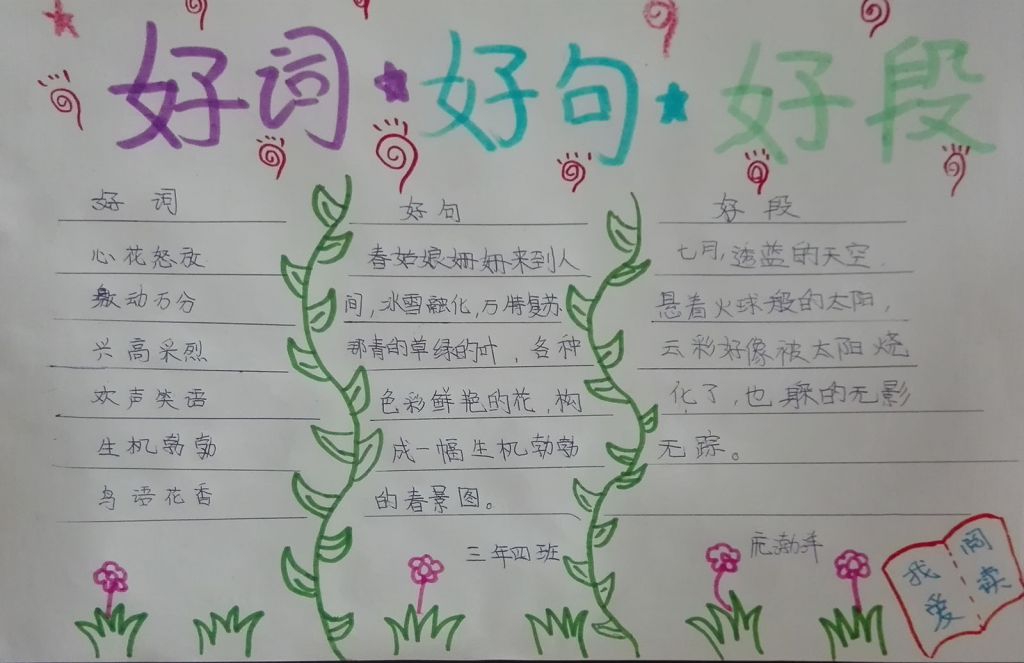 好词★好句★好段
好词
心花怒放
激动万分
兴高采烈
欢声笑语
生机勃勃
鸟语花香
好句
春姑娘姗姗来到人
间，冰雪融化，万物复苏
那青的草绿的叶，各种
色彩鲜艳的花，构
成一幅生机勃勃
的春景图。
三年四班
好段
七月，透蓝的天空.
悬着火球般的太阳，
云彩好像被太阳烧
化了，也躲的无影
无踪。
我爱
阅读